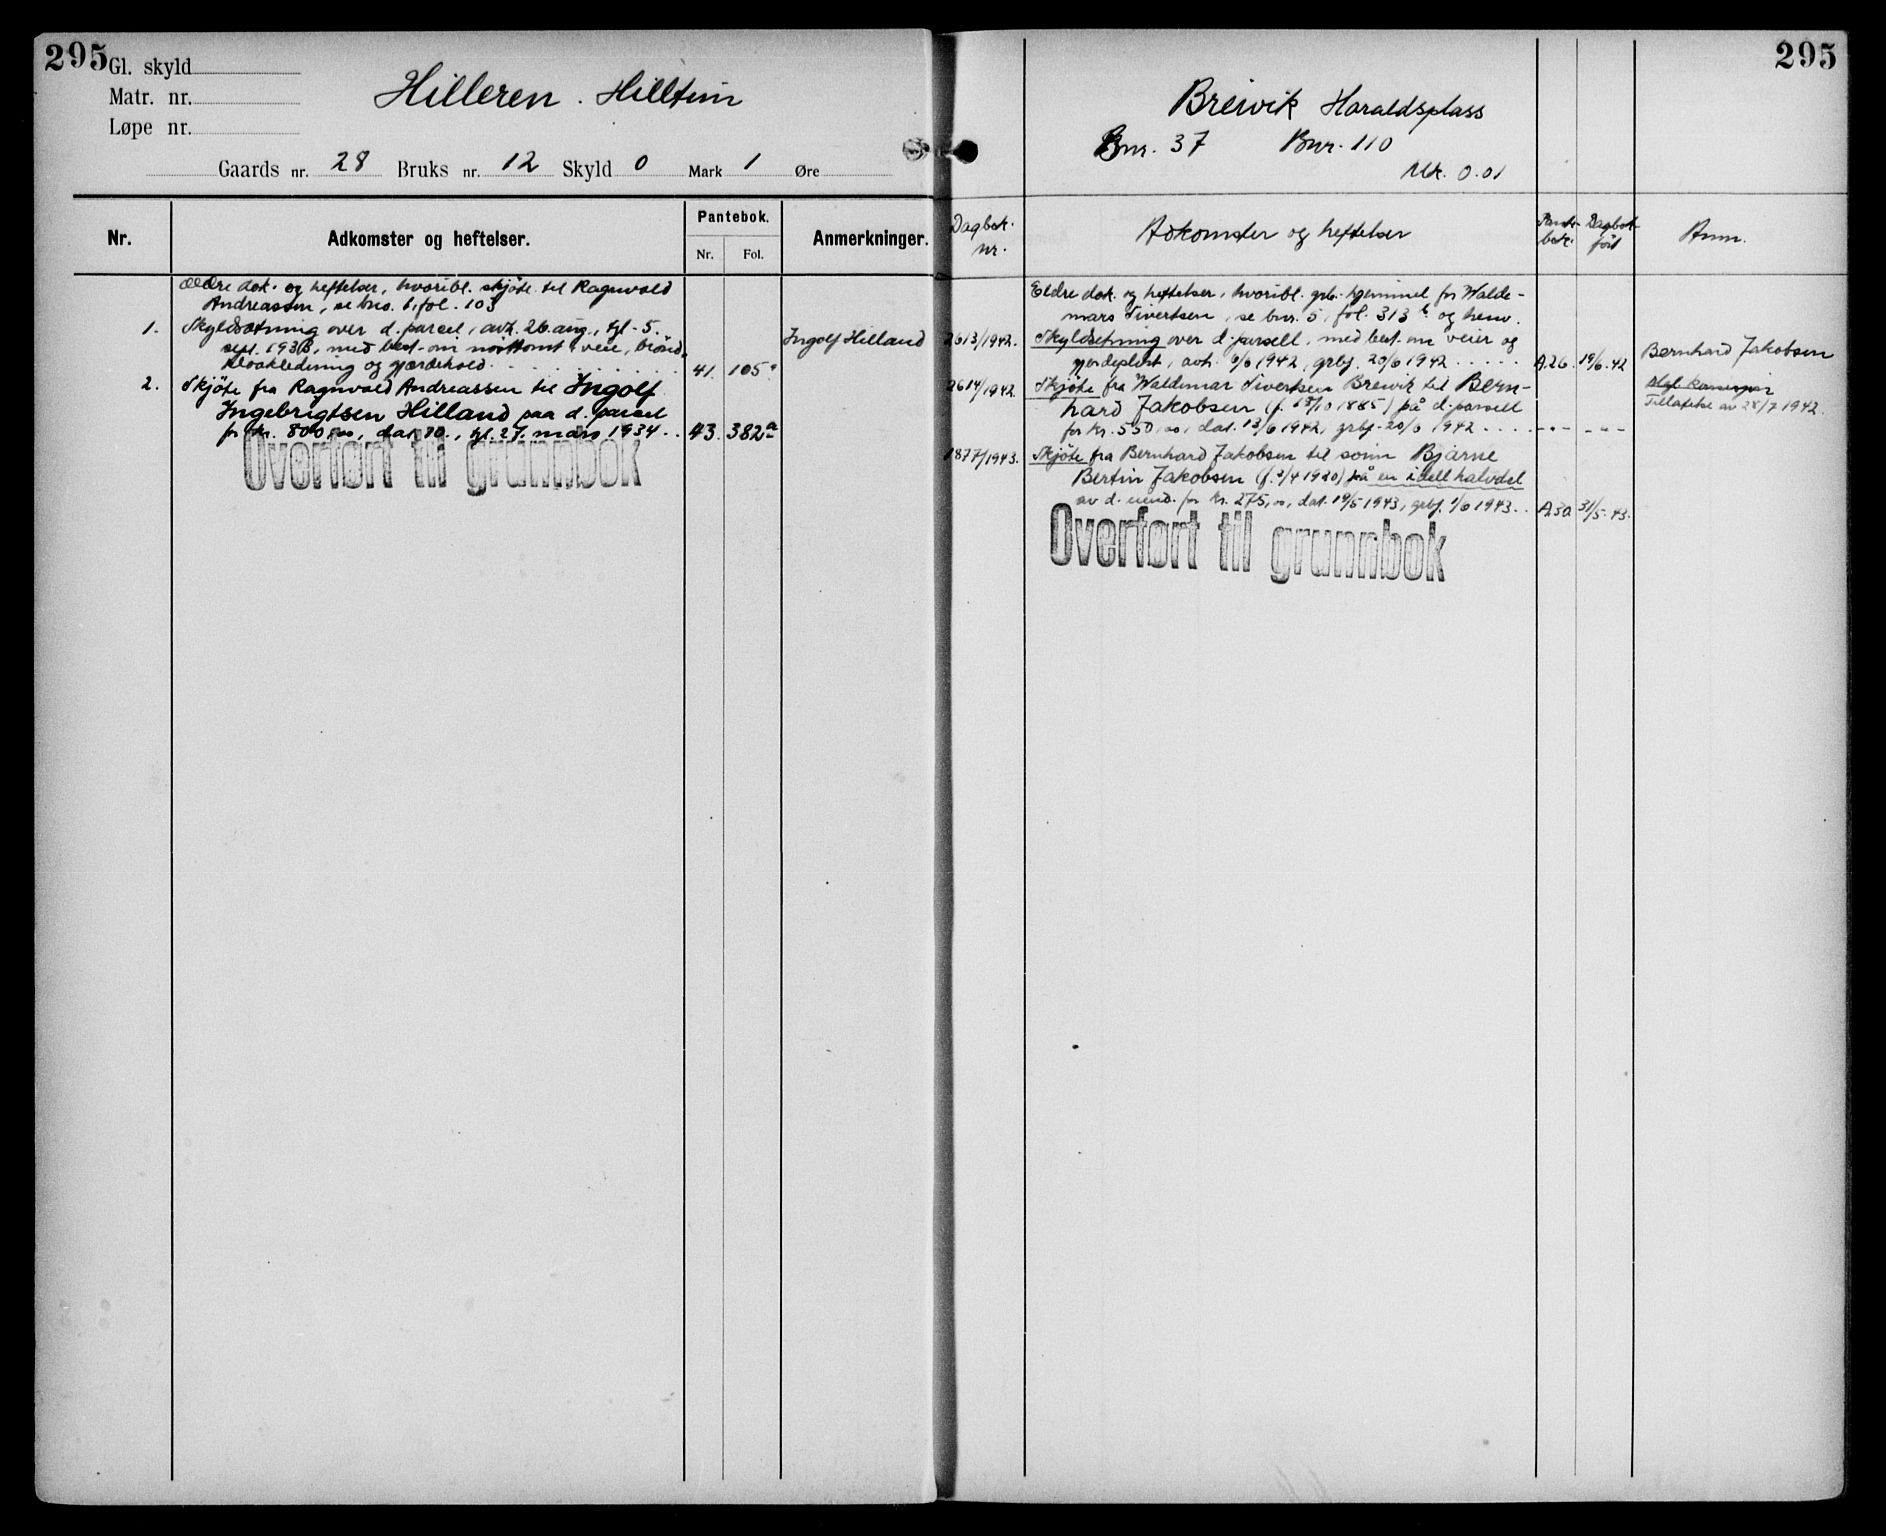 295
Gl. skyld
Matr. nr.
Løpe nr.
Hilleren. Hilltun
Gaards nr. 28 Bruks nr. 12 Skyld 0 Mark 1 Øre
Nr.
Adkomster og heftelser.
Pantebok.
Nr. Fol.
Anmerkninger.
Ældre dok. og heftelser, hvoribl. skjöte til Ragnvald
Andreassen, se bno. 6, fol. 103
1. Skyldsætning over d. parcel, avh. 26. aug., tgl. 5. Ingolf Hilland
sept. 1933, med best. om veie, brönd,
kloakledning og gjærdehold. 41. 105
2. Skjöte fra Ragnvald Andreassen til Ingolf
Ingebrigtsen Hilland paa d. parcel
for kr. 800,00, dat. 20., tgl. 27. mars 1934. 43. 382a
Overført til grunnbok
295
Breivik Haraldsplass
Gnr. 37 Bnr. 110
Mk. 0.01
Dagbok.
nr.
Adkomster og heftelser
Pante-
bok.
Dagbok-
ført
Anm.
Eldre dok. og heftelser, hvoribl. grb. hjemmel for Walde-
mars Sivertsen, se bnr. 5, fol. 313 b og henv.
2613/1942. Skyldsetning over d. parsell, med best. om veier og
gjerdeplikt, avh. 6/6 1942, grbf. 20/6 1942 A.26. 19/6.42 Bernhard Jakobsen
2614/1942 Skjöte fra Waldemar Sivertsen Breivik til Bern-
hard Jakobsen (f. 18/10 1885) på d. parsell Tillatelse av 28/7 1942.
for kr. 550,00, dat. 13/6 1942, grbf. 20/6 1942 - " - - " -
1877/1943. Skjöte fra Bernhard Jakobsen til sönn Bjarne
Bertin Jakobsen (f. 2/4 1920) på en idell halvdel
av d. eiend. for kr. 275,00, dat. 19/5 1943, grbf. 1/6 1943. A30 31/5.43.
Overført til grunnbok